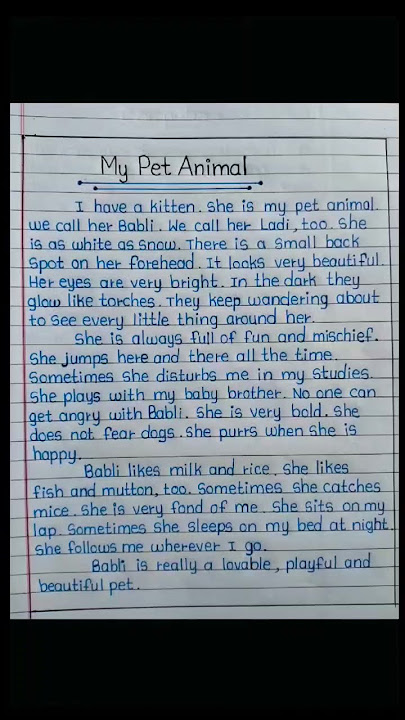 My Pet Animal
I have a kitten. She is my pet animal.
we call her Babli. We call her Ladi, too. She
is as white as snow. There is a small back
spot on her forehead. It looks very beautiful.
Her eyes are very bright. In the dark they
glow like torches. They keep wandering about
to see every little thing around her.
She is always full of fun and mischief.
She jumps here and there all the time.
Sometimes she disturbs me in my studies.
She plays with my baby brother. No one can
get angry with Babli. She is very bold. She
does not fear dogs. She purrs when she is
happy.
Babli likes milk and rice. She likes
fish and mutton, too. Sometimes she catches
mice. She is very fond of me. She sits on my
lap. Sometimes she sleeps on my bed at night.
She follows me wherever I go.
Babli is really a lovable, playful and
beautiful pet.